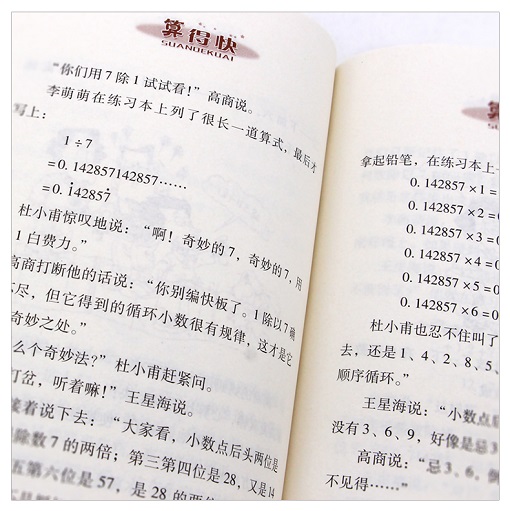 算得快
SUANDEKUAI
“你们用7除1试试看!”高商说。
李萌萌在练习本上列了很长一道算式,最后才
写上:
1÷7
=0.142857142857……
=0.1̇42857̇
杜小甫惊叹地说:“啊!奇妙的7,奇妙的7,用
1白费力。”
高商打断他的话说:“你别编快板了。1除以7确
尽,但它得到的循环小数很有规律,这才是它
奇妙之处。”
么个奇妙法?”杜小甫赶紧问。
打岔,听着嘛!”王星海说。
接着说下去:“大家看,小数点后头两位是
除数7的两倍;第三第四位是28,又是14
五第六位是57,是28的两
算
SUAN
拿起铅笔,在练习本上
0.142857×1=
0.142857×2=0
0.142857×3=0
0.142857×4=0
0.142857×5=0
0.142857×6=0
杜小甫也忍不住叫了
去,还是1、4、2、8、5、
顺序循环。”
王星海说:“小数点
没有3、6、9,好像是忌3
高商说:“忌3、6,倒
不见得……”